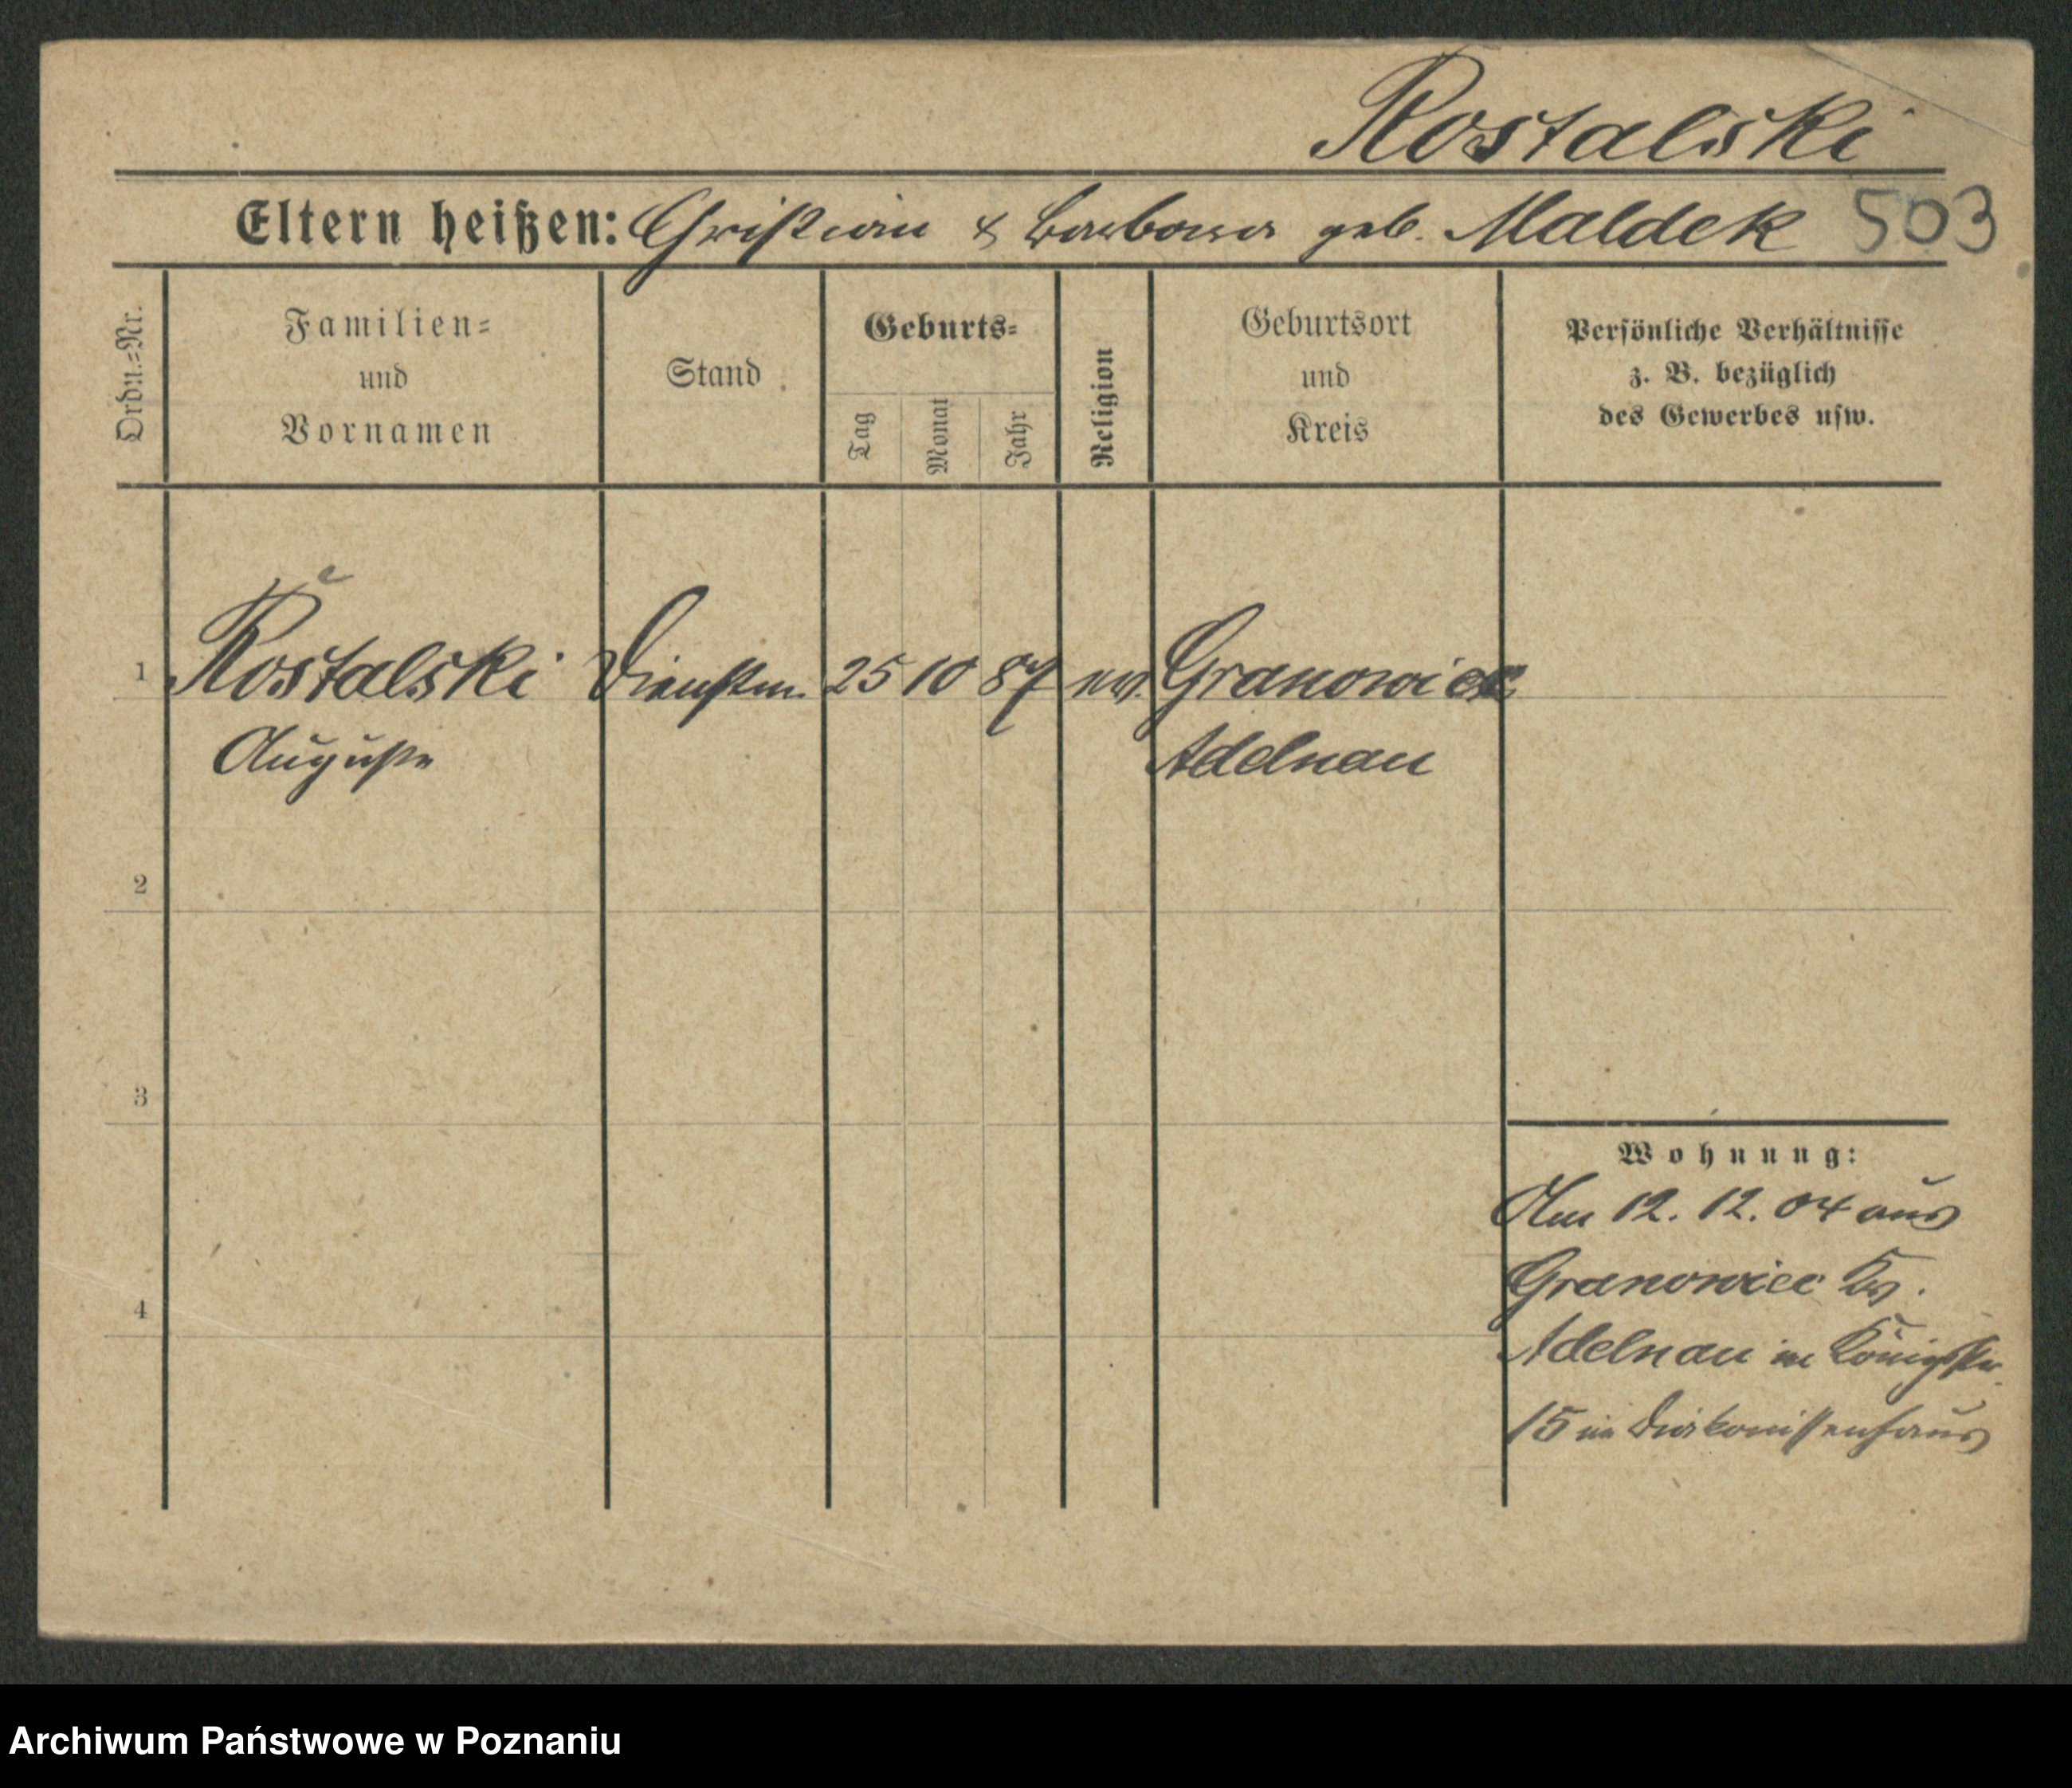 Rostalski
Eltern heißen: Christian & Barbara geb. Maldek 503
Ordn.=Nr.
Familien=
und
Vornamen
Stand
Geburts=
Tag
Monat
Jahr
Religion
Geburtsort
und
Kreis
Persönliche Verhältnisse
z. B. bezüglich
des Gewerbes usw.
1 Rostalski Dienstm. 25 10 87 ev. Granowiec
Auguste Adelnau
2
3
4
Wohnung:
Am 12. 12. 04 aus
Granowiec Krs.
Adelnau in Königstr.
15 im Diakonissenhaus
Archiwum Państwowe w Poznaniu